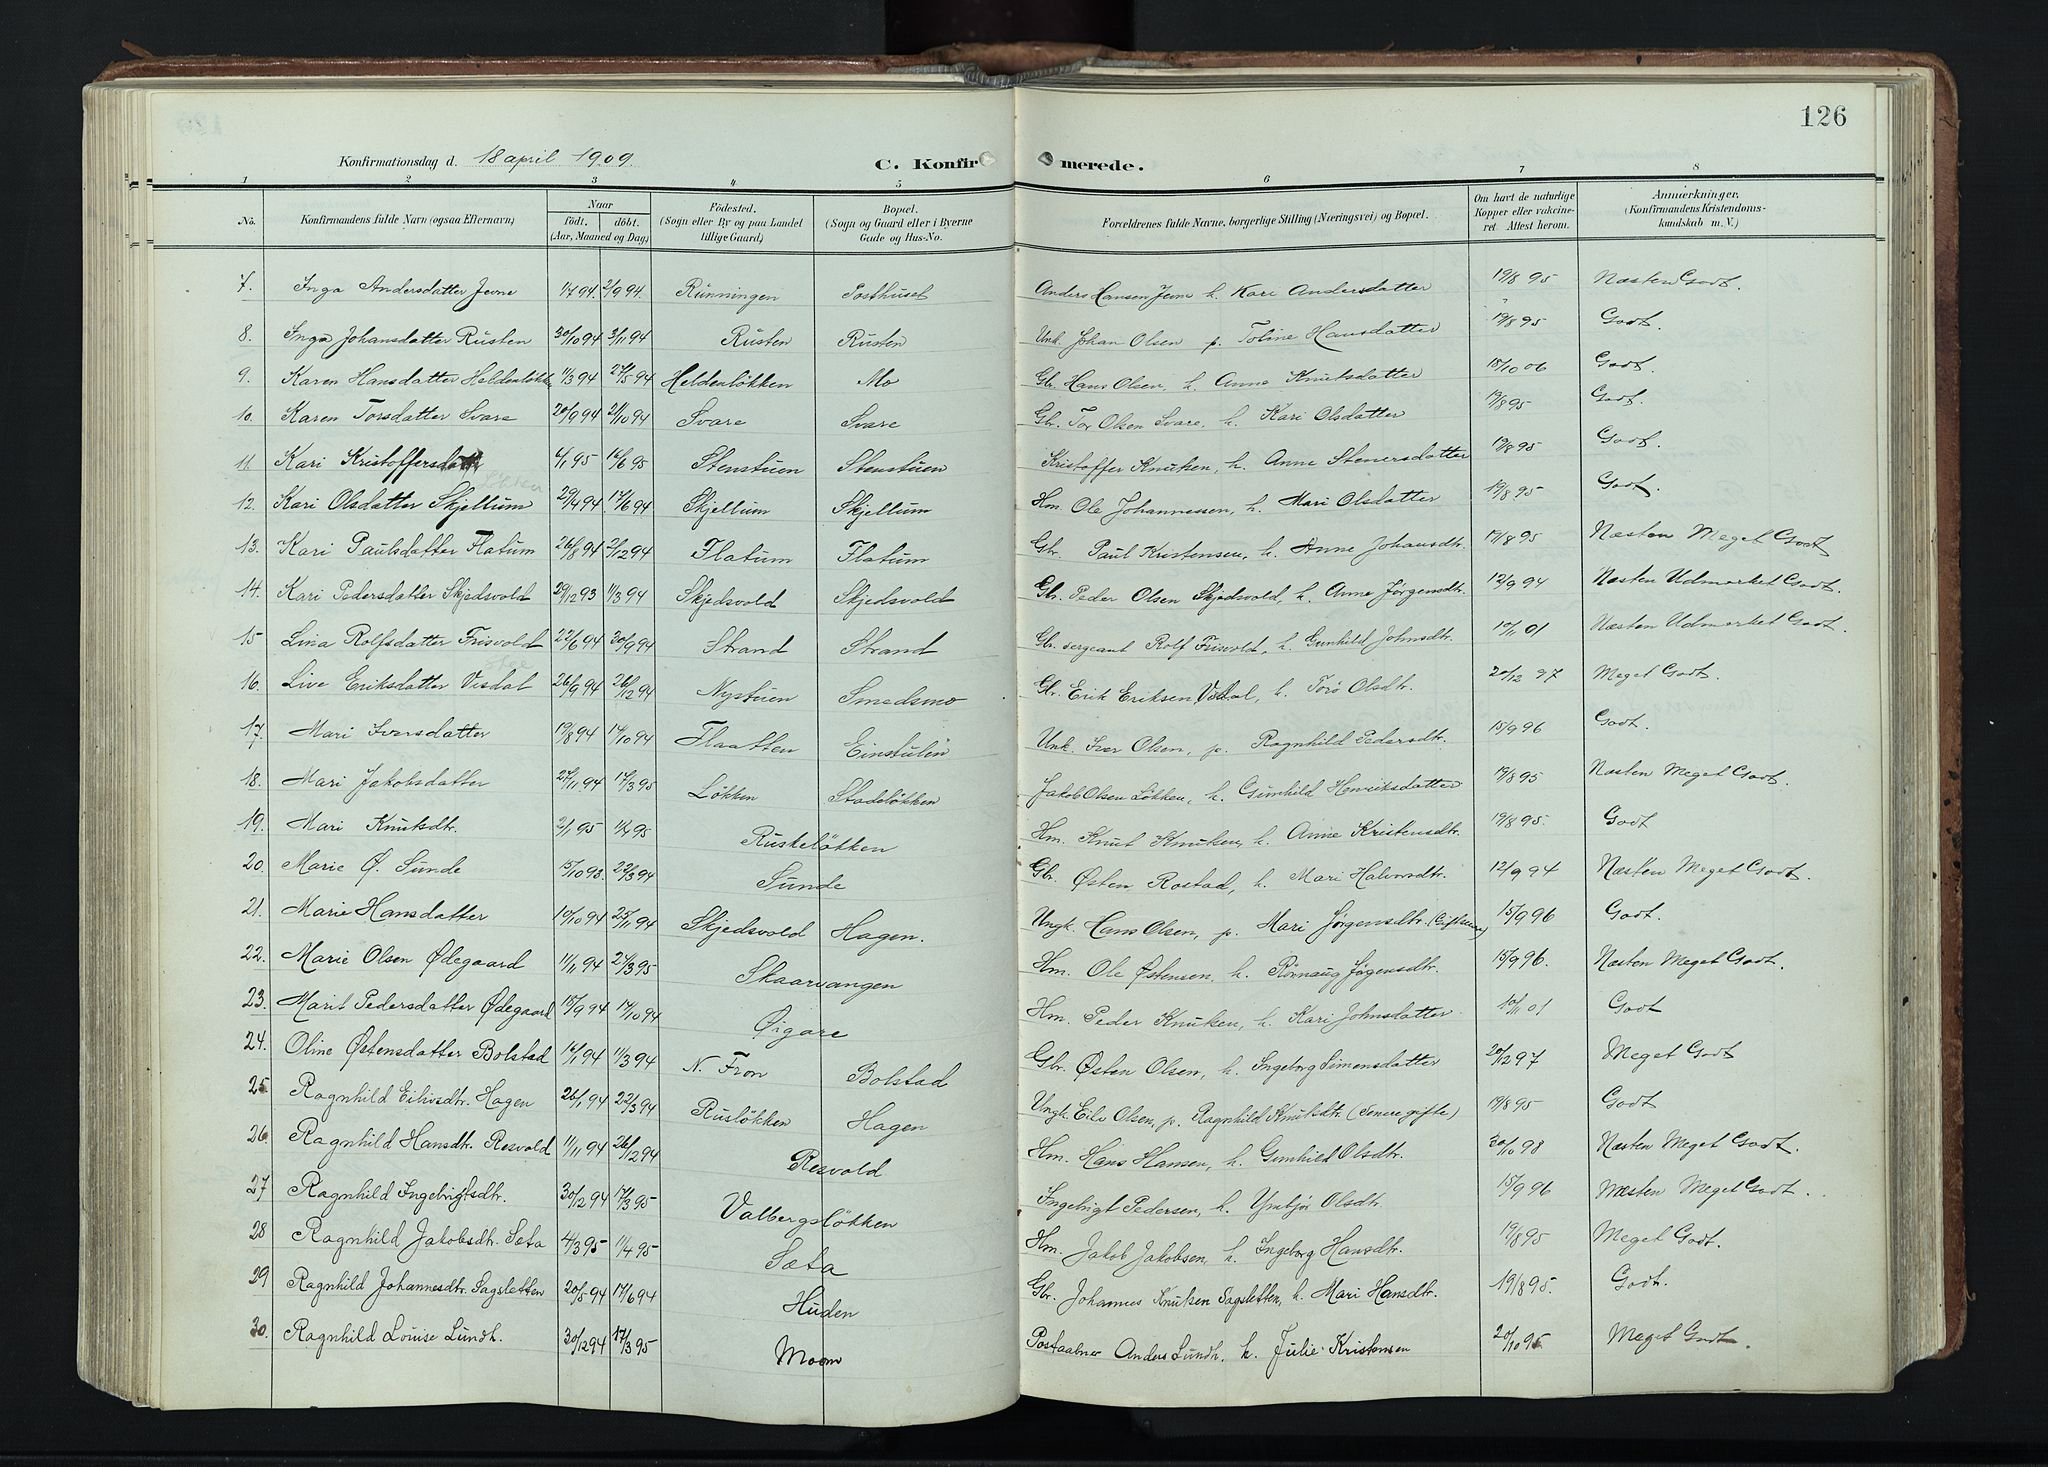 126
Konfirmationsdag d. 18 april 1909. C. Konfirmerede.
1 2 3 4 5 6 7 8
No. Konfirmandens fulde Navn (ogsaa Efternavn) Naar født. døbt. (Aar, Maaned og Dag) Fødested. (Sogn eller By og paa Landet tillige Gaard) Bopæl. (Sogn og Gaard eller i Byerne Gade og Hus-No. Forældrenes fulde Navne, borgerlige Stilling (Næringsvei) og Bopæl. Om havt de naturlige Kopper eller vakcineret. Attest herom. Anmærkninger. (Konfirmandens Kristendomskundskab m. V.)
7. Inga Andersdatter Jevne 1/7 94. 2/9 94. Runningen Posthuset Anders Hansen Jevne h. Kari Andersdatter 19/8 95 Næsten Godt.
8. Inga Johansdatter Rusten 30/10 94 3/11 94 Rusten Rusten Unk. Johan Olsen p. Toline Hansdatter 19/8 95 Godt.
9. Karen Hansdatter Heldenløkken 11/3 94 27/5 94 Heldenløkken Mo Gbr. Hans Olsen, h. Anne Knutsdatter 15/10 06 Godt.
10. Karen Torsdatter Svare 20/9 94 21/10 94 Svare Svare Gbr. Tor Olsen Svare, h. Kari Olsdatter 19/8 95 Godt.
11. Kari Kristoffersdatter 4/1 95 16/6 95 Stenstuen Stenstuen Kristoffer Knutsen, h. Anne Stenersdatter 19/8 95 Godt.
12. Kari Olsdatter Skjellum 29/4 94. 17/6 94 Skjellum Skjellum Hm. Ole Johannessen, h. Mari Olsdatter 19/8 95 Godt.
13. Kari Paulsdatter Flatum 26/8 94 2/12 94 Flatum Flatum Gbr. Paul Kristensen, h. Anne Johansdtr. 19/8 95 Næsten Meget Godt
14. Kari Pedersdatter Skjedsvold 29/12 93 11/3 94 Skjedsvold Skjedsvold Gbr. Peder Olsen Skjedsvold, h. Anne Jørgensdtr. 12/9 94 Næsten Udmerket Godt.
15 Lina Rolfsdatter Frisvold 22/6 94 30/9 94 Strand Strand Gbr. sergeant Rolf Frisvold, h. Gunhild Johnsdtr. 10/11 01 Næsten Udmerket Godt.
16. Live Eriksdatter Visdal 26/9 94 26/12 94 Nystuen Smedsmo Gbr. Erik Eriksen Visdal, h. Torø Olsdtr. 20/12 97 Meget Godt.
17. Mari Iversdatter 19/8 94 14/10 94 Flaatten Einstulen Unk. Iver Olsen, p. Ragnhild Pedersdtr. 15/9 96 Godt.
18. Mari Jakobsdatter 27/11 94 17/3 95 Løkken Stadeløkken Jakob Olsen Løkken, h. Gunhild Henriksdatter 19/8 95 Næsten Meget Godt.
19. Mari Knutsdtr. 2/1 95 1/4 95 Ruskeløkken Hm. Knut Knutsen, h. Anne Kristensdtr. 19/8 95. Godt
20. Marie Ø. Sunde 15/10 93. 22/3 94 Sunde Gbr. Østen Rostad, h. Mari Halvorsdtr. 12/9 94 Næsten Meget Godt.
21. Marie Hansdatter 10/10 94 25/11 94 Skjedsvold Hagen. Ungk. Hans Olsen, p. Mari Jørgensdtr. 15/9 96 Godt.
22. Marie Olsen Ødegaard 11/11 94 27/3 95 Skaarvangen Hm. Ole Østensen, h. Rønnaug Jørgensdtr. 15/9 96. Næsten Meget Godt.
23. Marit Pedersdatter Ødegaard 15/9 94 14/10 94 Øigare Hm. Peder Knutsen, h. Kari Johnsdatter. 10/11 01 Godt
24. Oline Østensdatter Bolstad 16/1 94 11/3 94 N. Fron Bolstad Gbr. Østen Olsen, h. Ingeborg Simensdatter 20/12 97 Meget Godt
25 Ragnhild Eilivsdtr. Hagen 26/1 94 22/3 94 Rusløkken Hagen Ungk. Eiliv Olsen, p. Ragnhild Knutsdtr. (Senere gifte) 19/8 95 Godt
26. Ragnhild Hansdtr. Resvold 11/11 94 26/12 94 Resvold Hm. Hans Hansen, h. Gunhild Olsdtr. 30/10 98 Næsten Meget Godt.
27 Ragnhild Ingebrigtsdtr. 30/12 94 17/3 95 Valbergsløkken Ingebrigt Pedersen, h. Ymbjør Olsdtr. 15/9 96 Næsten Meget Godt.
28 Ragnhild Jakobsdtr. Sæta 4/3 95 11/4 95 Sæta Hm. Jakob Jakobsen, h. Ingeborg Hansdtr. 19/8 95 Meget Godt.
29 Ragnhild Johannesdtr. Sagsletten 20/5 94 17/6 94 Huden Gbr. Johannes Knutsen Sagsletten, h. Mari Hansdtr. 19/8 95. Godt.
30. Ragnhild Louise Lundh. 30/12 94 17/3 95 Moom Postaabner Anders Lundh. h. Julie Kristensen 20/10 95 Meget Godt.